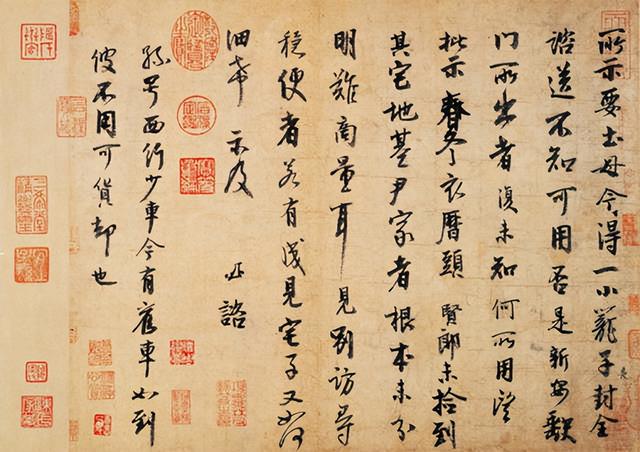 所示要土母今得一小籠子封全
諮送不知可用否是新安缺
門所出者復未知何所用望
批示春冬衣曆頭賢郎未檢到
其宅地基尹家者根本未分
明難商量耳見別訪尋
穩便者若有成見宅子又如何
細希示及 諮
孫号西行少車今有舊車如到
彼不用可貨却也